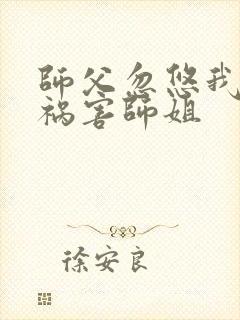 師父忽悠我
祸害師姐
徐安良